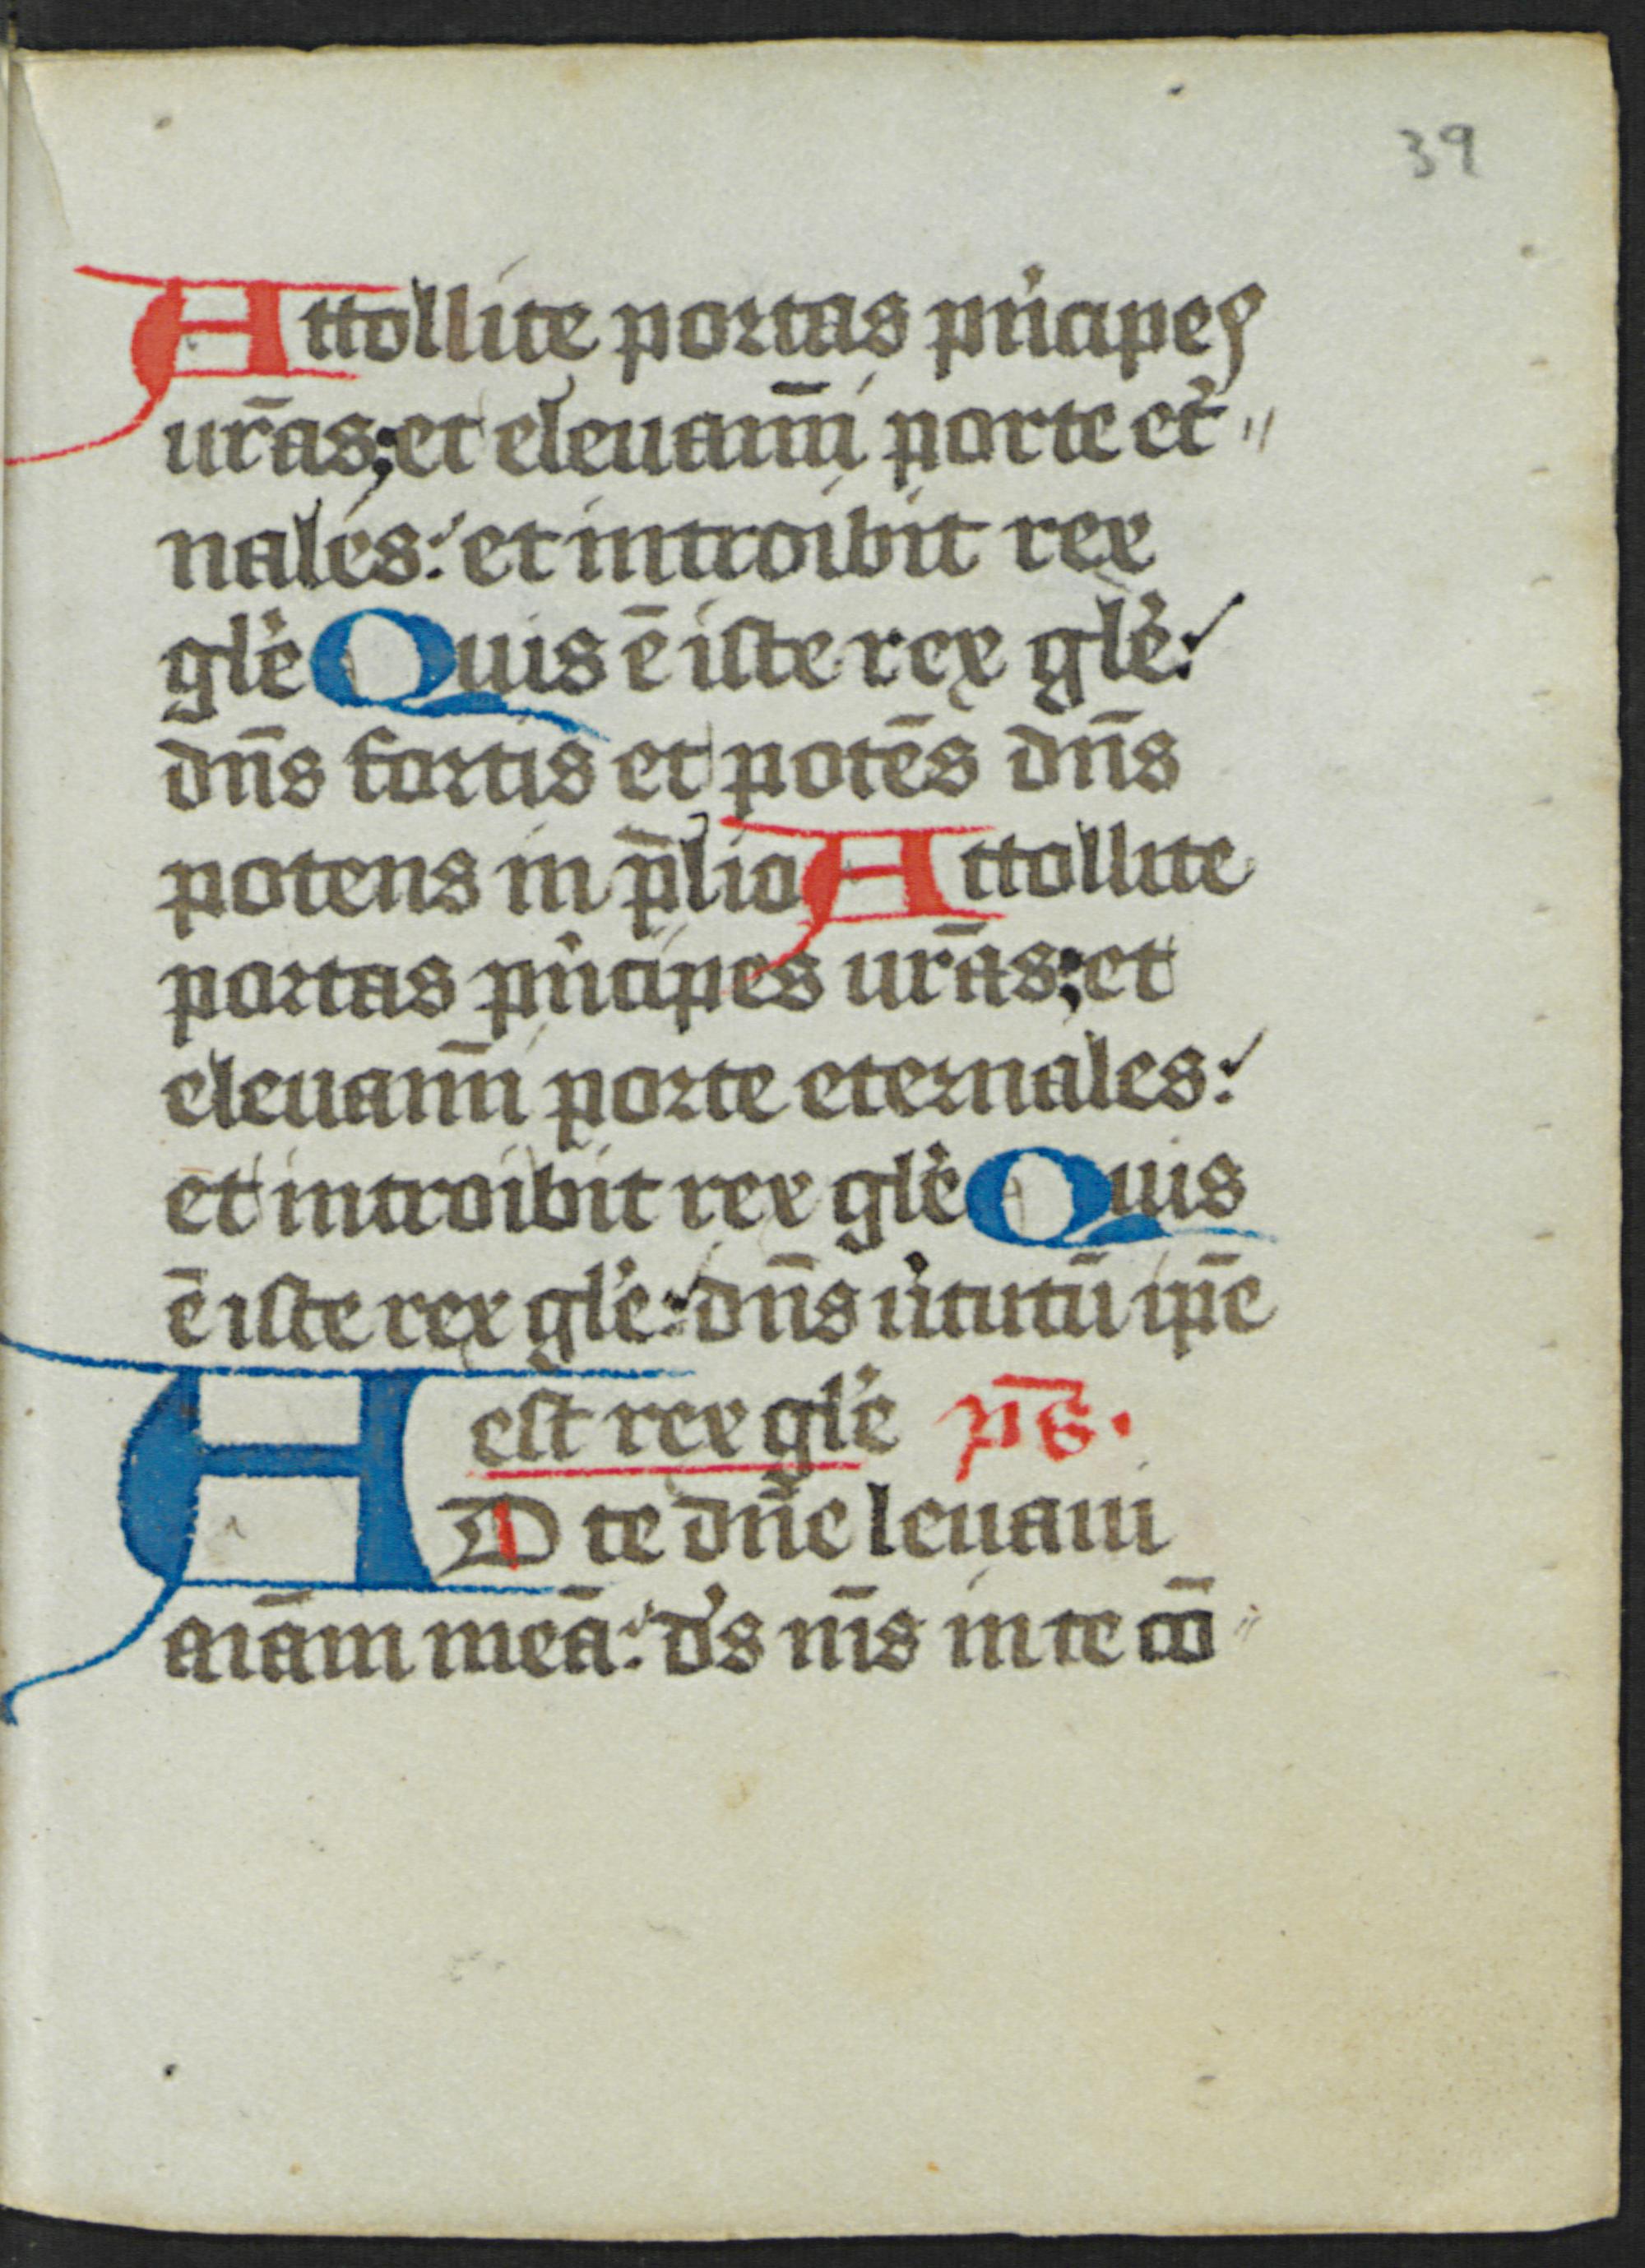 39
Attollite portas pͥncipes
ur̄as; et eleuamī porte et̾〃
nales: et introibit rex
gl̾e Quis ē iste rex gl̾e:
dn̄s fortis et potēs dn̄s
potens in p̄lio Attollite
portas pͥncipes ur̄as; et
eleuamī porte eternales:
et introibit rex gl̾e Quis
ē iste rex gl̾e: dn̄s uͥtutū ip̄e
est rex gl̾e pē̄s.
AD te dn̄e leuaui
aīam meā: d̾s m̄s in te cō〃